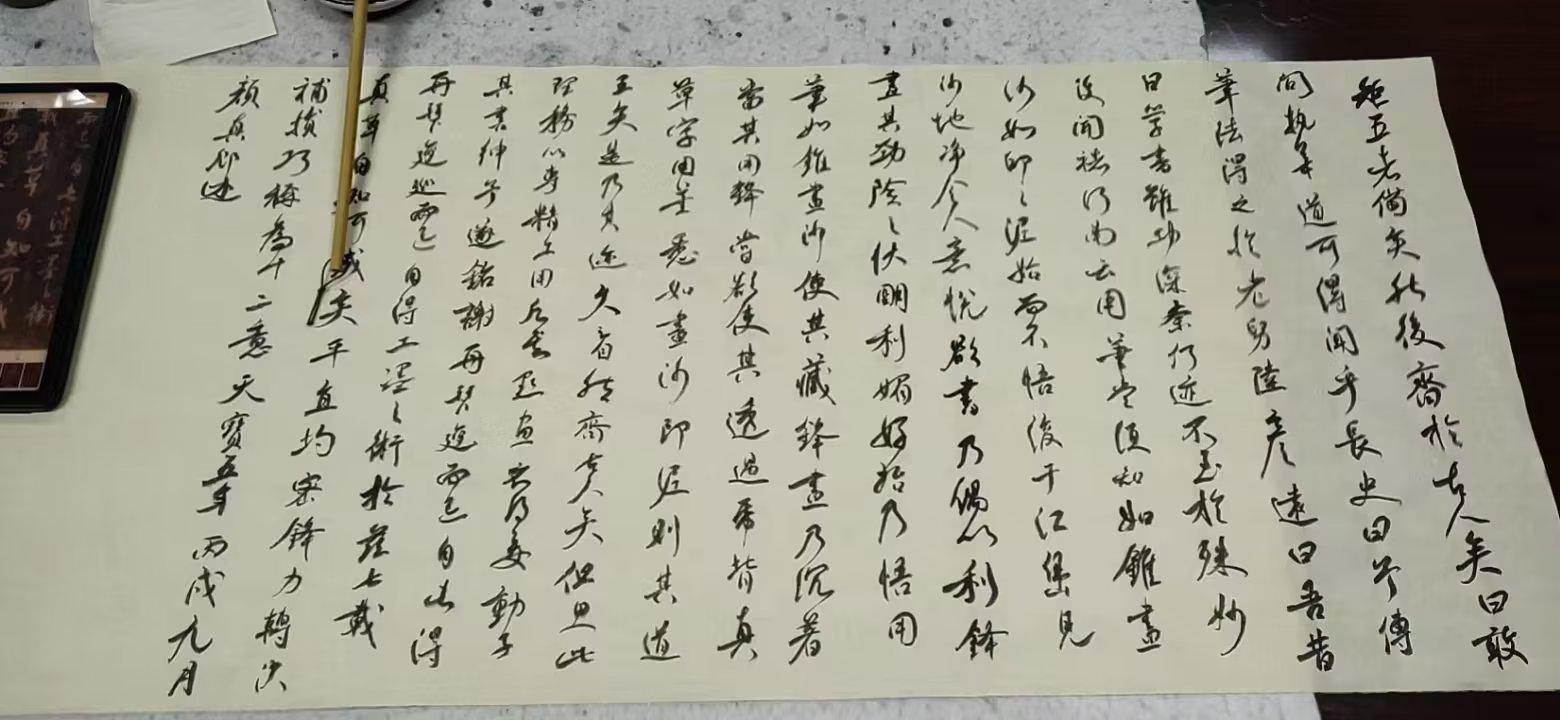 矩五者備矣然後齊於古人矣曰敢
問執筆之道可得聞乎長史曰予傳
筆法得之於老舅陸彥遠曰吾昔
日學書雖功深奈何迹不至於殊妙
後聞褚河南云用筆當須知如錐畫
沙如印印泥始而不悟後于江島見
沙地淨令人意悅欲書乃偶以利鋒
畫其勁險之狀明利媚好始乃悟用
筆如錐畫沙使其藏鋒畫乃沉著
當其用鋒常欲使其透過紙背真
草字用筆悉如畫沙印泥則其道
至矣是乃其迹久之自然齊古人矣但思此
理務以專精工用點畫不得妄動子
其書紳予遂銘謝再拜逡巡而退自此得
再拜逡巡而退自得工墨之術於茲七載
真草自知可成矣平直均密鋒力轉決
補損巧稱為十二意天寶五年丙戌九月
顏真卿述